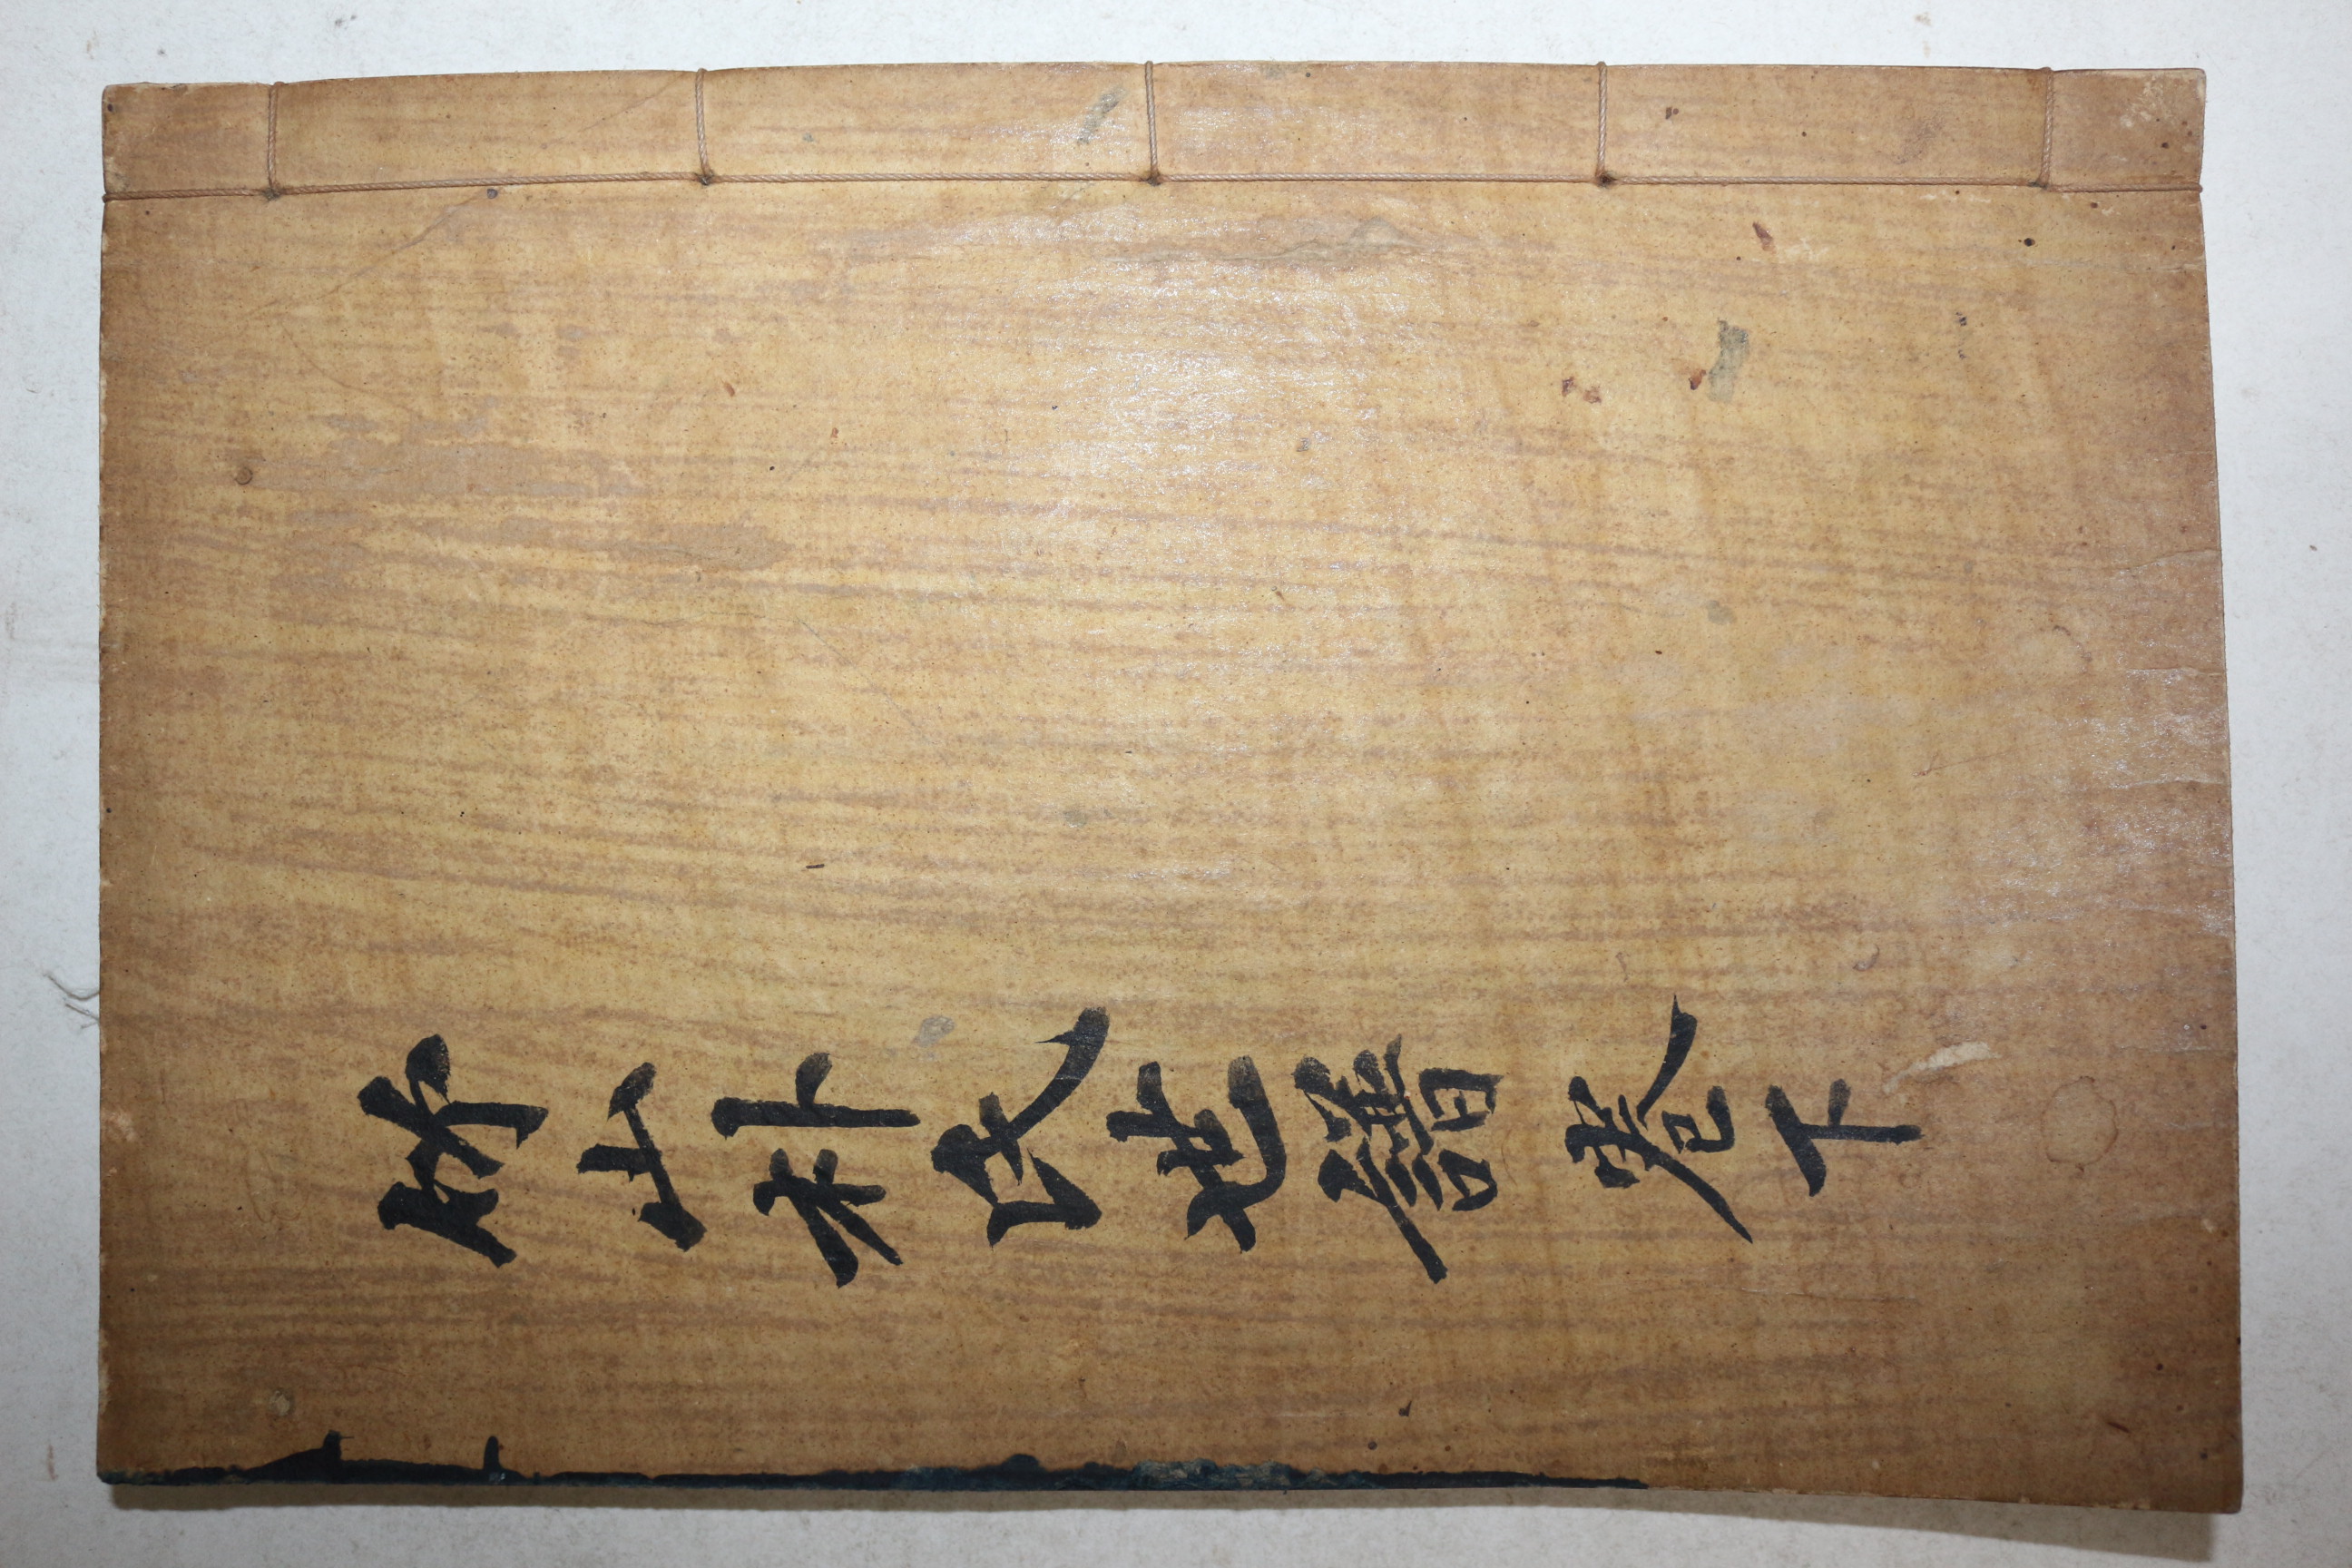 竹山朴氏世譜卷下